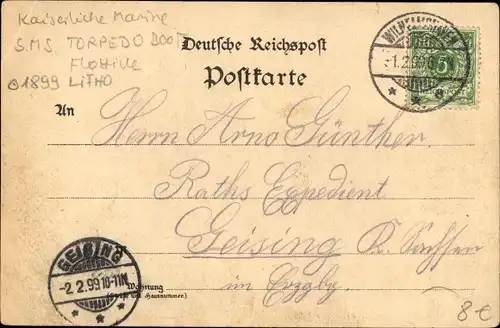 Kaiserliche Marine
S.M.S. TORPEDO BOOT
Flottille
1899 LITHO
Deutsche Reichspost
Postkarte
WILHELMSHAVEN
-1.2.99
5
An
Herrn Arno Günther,
Raths Expedient
Geising K. Sachsen
im Erzgb.
GEISING
-2.2.99 10-11N.
Wohnung
(Straße und Hausnummer)
8€